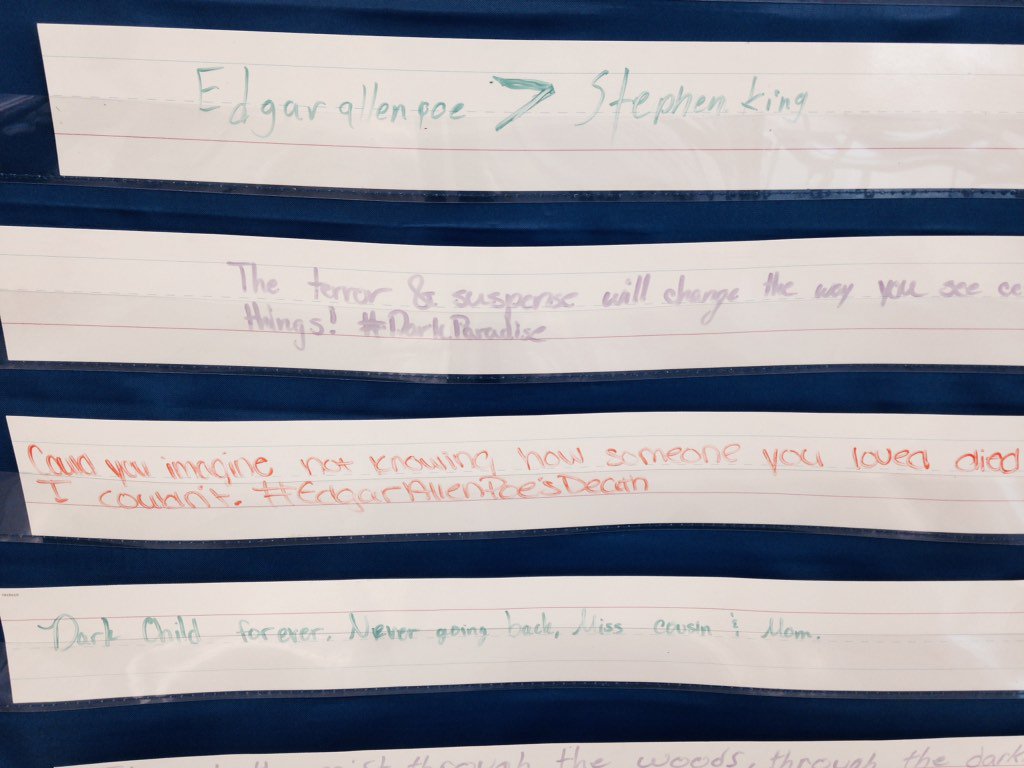 Edgar allen poe > Stephen king
The terror & suspense will change the way you see ce
things! #DarkParadise
Could you imagine not knowing how someone you loved died
I couldn't. #EdgarAllenPoe'sDeath
Dark Child forever. Never going back, Miss cousin & Mom.
mist through the woods, through the dark